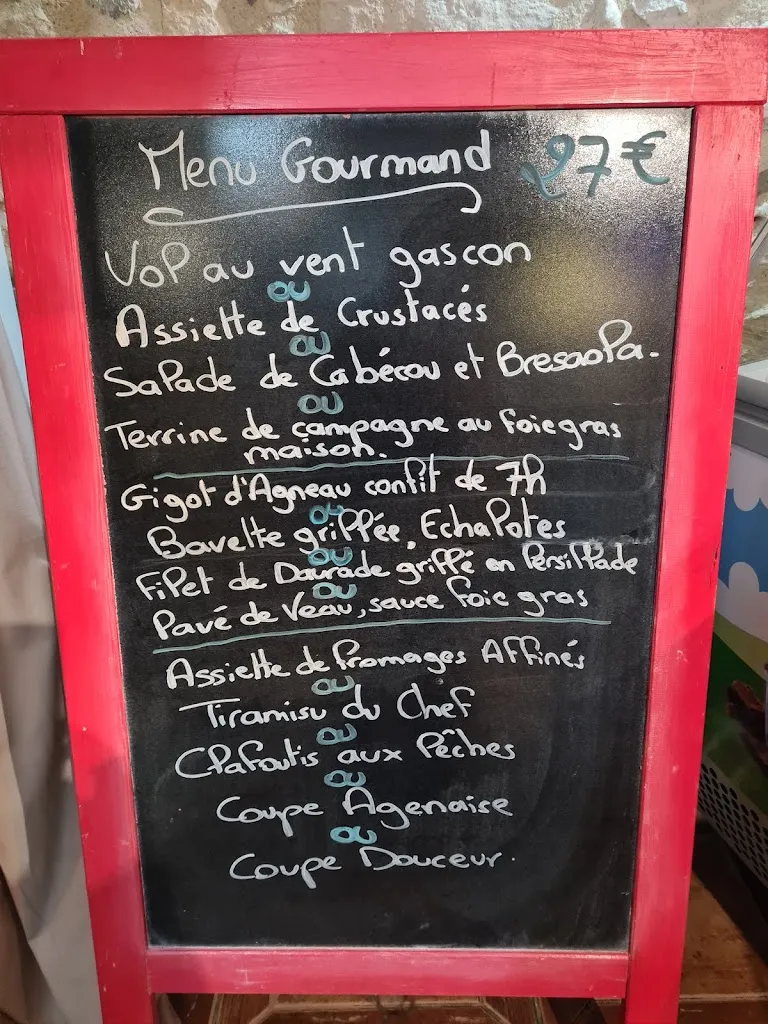 Menu Gourmand 27€
Vol au vent gascon
ou
Assiette de Crustacés
ou
Salade de Cabécou et Bresaola.
ou
Terrine de campagne au foie gras
maison.
Gigot d'Agneau confit de 7h
ou
Bavette grillée, Echalotes
ou
Filet de Daurade grillé en Persillade
ou
Pavé de Veau, sauce foie gras
Assiette de fromages Affinés
ou
Tiramisu du Chef
ou
Clafoutis aux Pêches
ou
Coupe Agenaise
ou
Coupe Douceur.